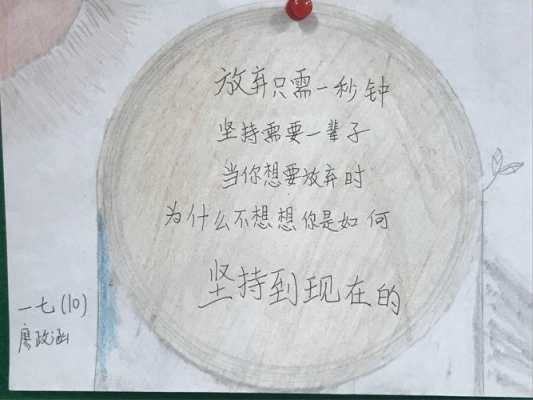 放弃只需一秒钟
坚持需要一辈子
当你想要放弃时
为什么不想想你是如何
坚持到现在的
一七(10)
廖政涵